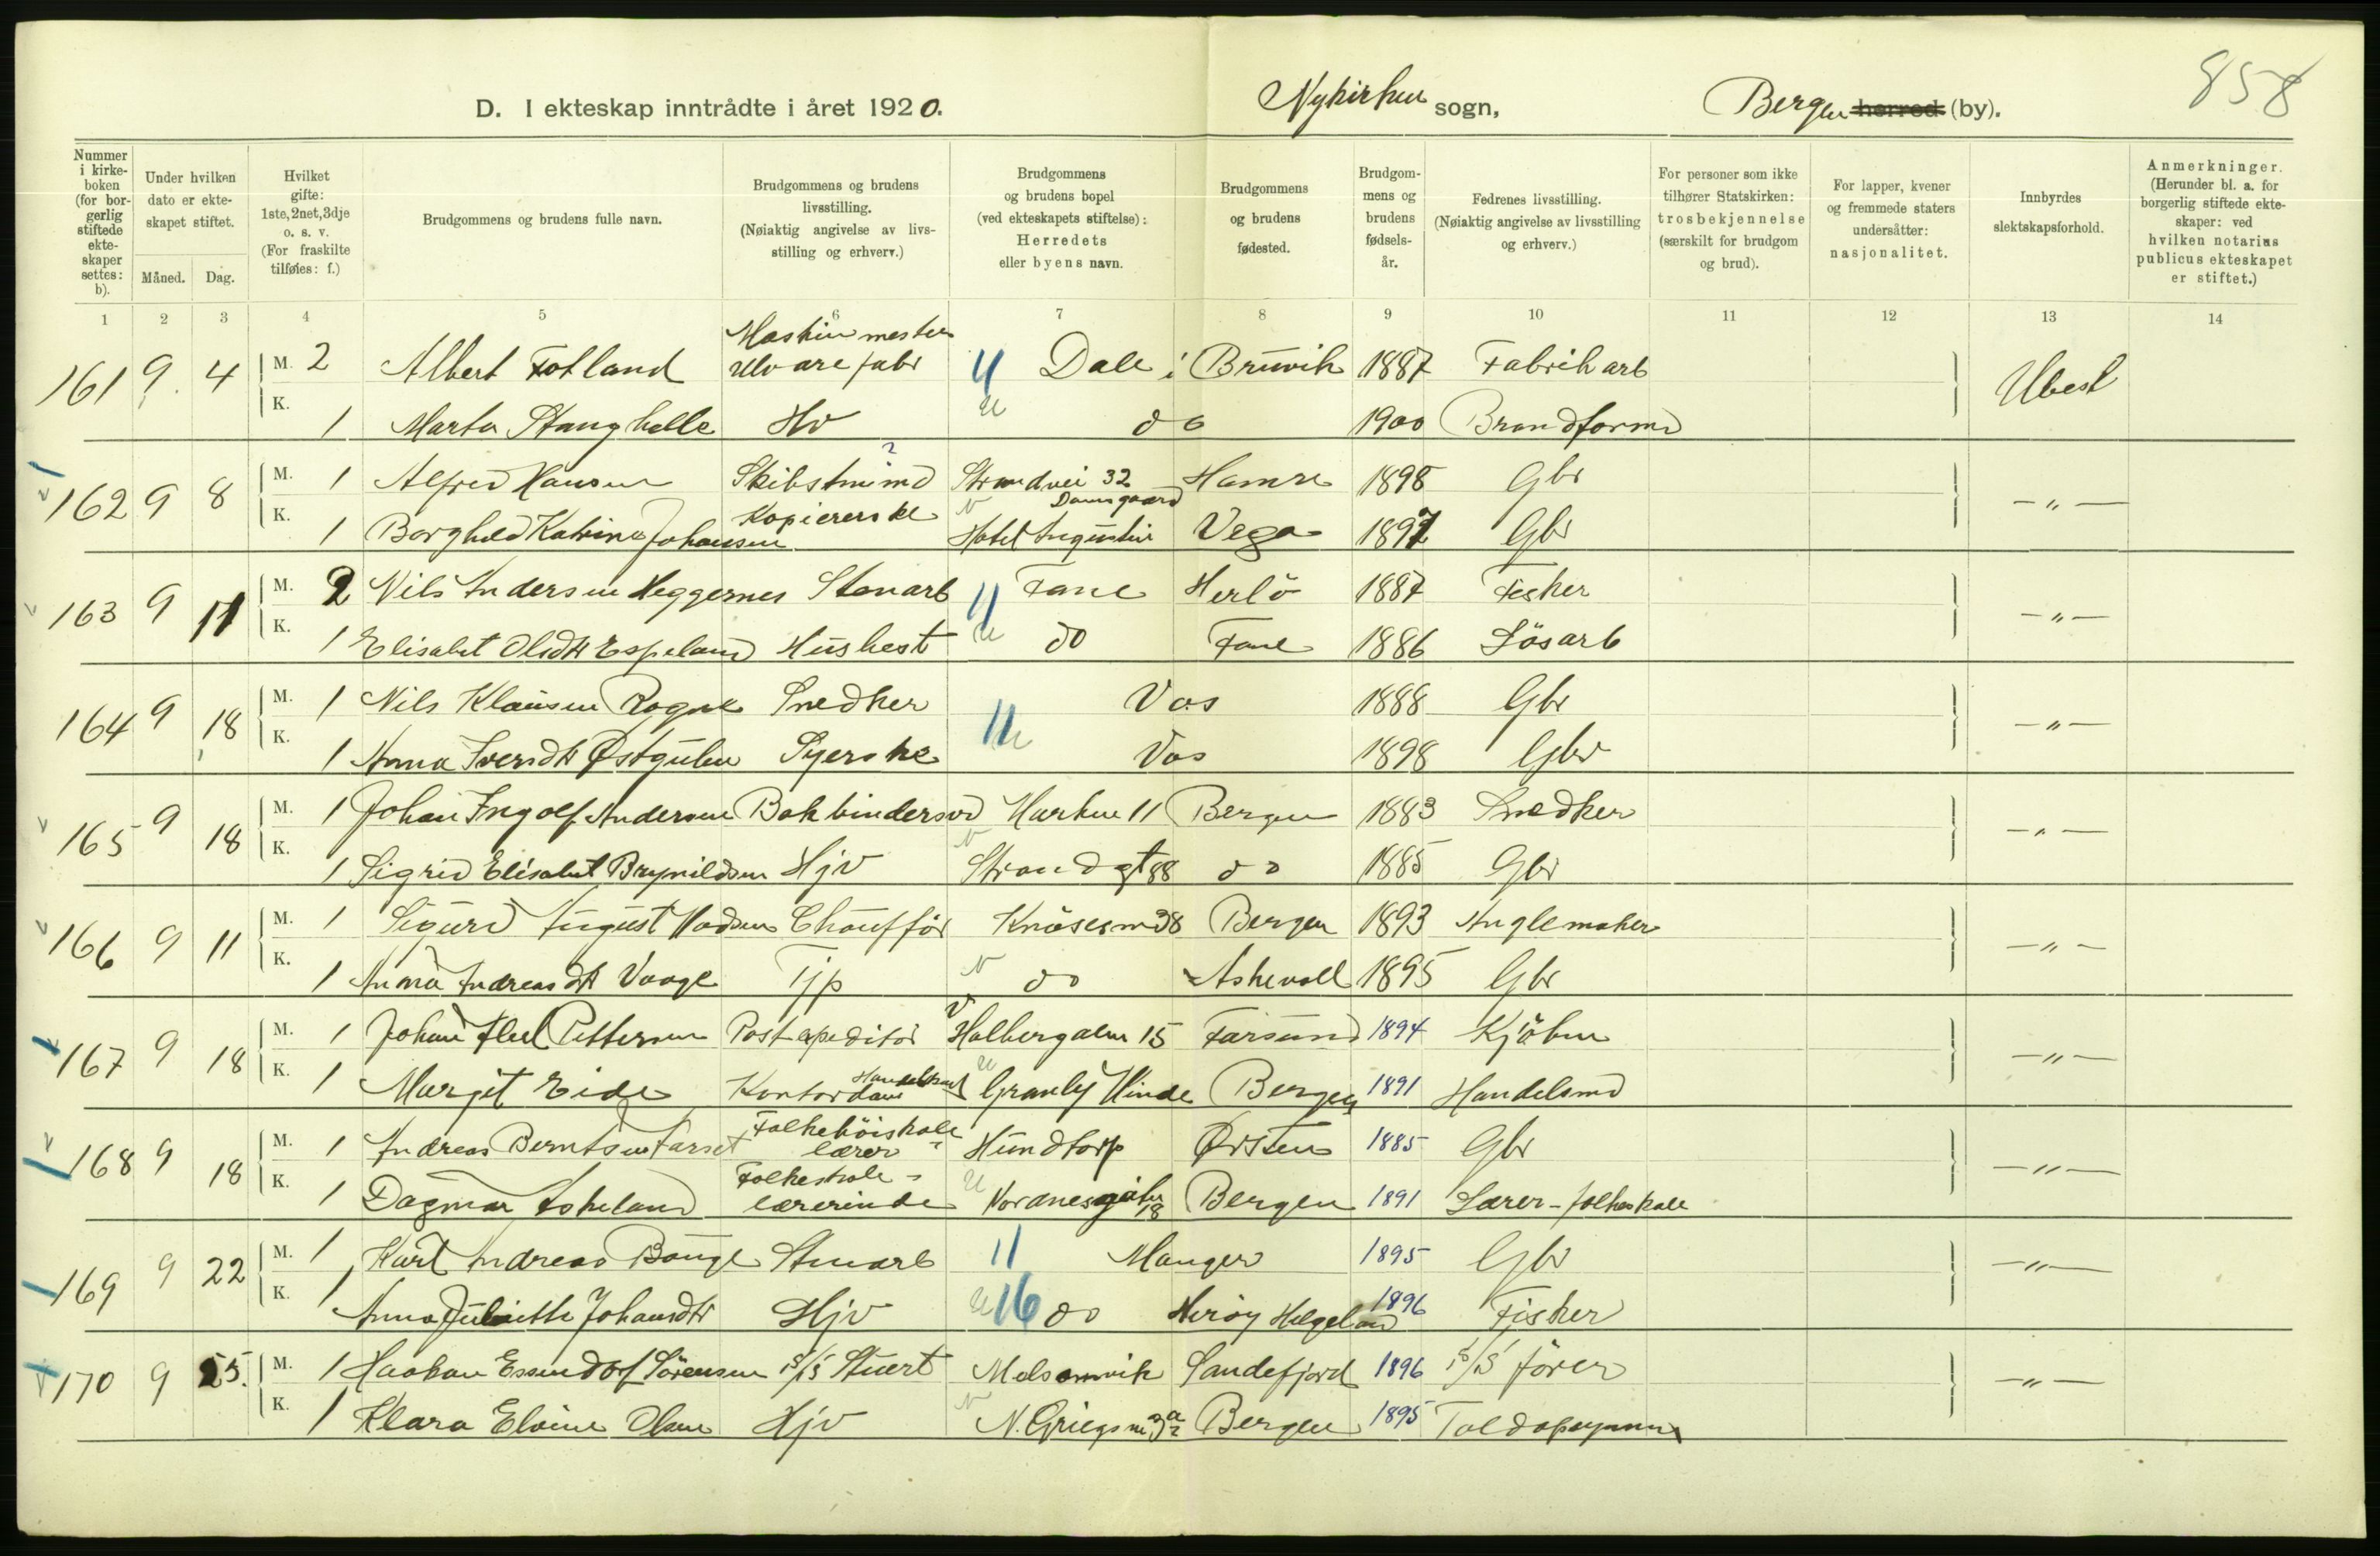 858
D. I ekteskap inntrådte i året 1920. Nykirken sogn, Bergen herred (by).
Nummer i kirkeboken (for borgerlig stiftede ekteskaper settes: b).
Under hvilken dato er ekteskapet stiftet.
Måned. Dag.
Hvilket gifte: 1ste, 2net, 3dje o. s. v. (For fraskilte tilføies: f.)
Brudgommens og brudens fulle navn.
Brudgommens og brudens livsstilling. (Nøiaktig angivelse av livsstilling og erhverv.)
Brudgommens og brudens bopel (ved ekteskapets stiftelse): Herredets eller byens navn.
Brudgommens og brudens fødested.
Brudgommens og brudens fødselsår.
Fedrenes livsstilling. (Nøiaktig angivelse av livsstilling og erhverv.)
For personer som ikke tilhører Statskirken: trosbekjennelse (særskilt for brudgom og brud).
For lapper, kvener og fremmede staters undersåtter: nasjonalitet.
Innbyrdes slektskapsforhold.
Anmerkninger. (Herunder bl. a. for borgerlig stiftede ekteskaper: ved hvilken notarius publicus ekteskapet er stiftet.)
1 2 3 4 5 6 7 8 9 10 11 12 13 14
161 9 4 M. 2 Albert Fotland Maskinmester Ulvarefabr Dale i Bruvik 1887 Fabrikarb Ubesl
K. 1 Marta Stanghelle Hv do 1900 Brandformd
162 9 8 M. 1 Alfred Hansen Skibstmmd Strandvei 32 Damsgaard Hamre 1898 Gbr - " -
K. 1 Borghild Katrine Johansen Kopiererske Hotel Augustin Vega 1897 Gbr
163 9 11 M. 2 Nils Andersen Heggernes Stenarb Fane Herlö 1887 Fisker - " -
K. 1 Elisabet Olsdtr Espeland Husbest do Fane 1886 Lösarb
164 9 18 M. 1 Nils Klausen Rogne Snedker Vos 1888 Gbr - " -
K. 1 Anna Sversdtr Østgulen Syerske Vos 1898 Gbr
165 9 18 M. 1 Johan Ingolf Andersen Bokbindersv Marken 11 Bergen 1883 Snedker - " -
K. 1 Sigrid Elisabet Brynildsen Hjv Strandgt 88 do 1885 Gbr
166 9 11 M. 1 Sigurd August Madsen Chauffør Knösesm 38 Bergen 1893 - " -
K. 1 Anna Andreasdtr Vaage Tjp do Askevoll 1895 Gbr
167 9 18 M. 1 Johan Pettersen Postexpeditör Holbergalm 15 Farsund 1894 Kjöbm - " -
K. 1 Margit Eide Kontordame Granly Minde Bergen 1891 Handelsmd
168 9 18 M. 1 Andreas Berntsen Farset Folkehöiskolelærer Hundtorp Ørsten 1885 Gbr - " -
K. 1 Dagmar Askeland Folkeskolelærerinde Nordnesgaten 18 Bergen 1891 Lærer - folkeskole
169 9 22 M. 1 Kurt Andreas Bauge Stuarb 11 Manger 1895 Gbr - " -
K. 1 Anna Johansdtr Hjv 16 do Heröy Helgeland 1896 Fisker
170 9 25. M. 1 Haakon Essendorf Sörensen S/S Stuert Melsomvik Sandefjord 1896 S/S förer - " -
K. 1 Klara Elvine Olsen Hjv N. Griegsm 3a Bergen 1895